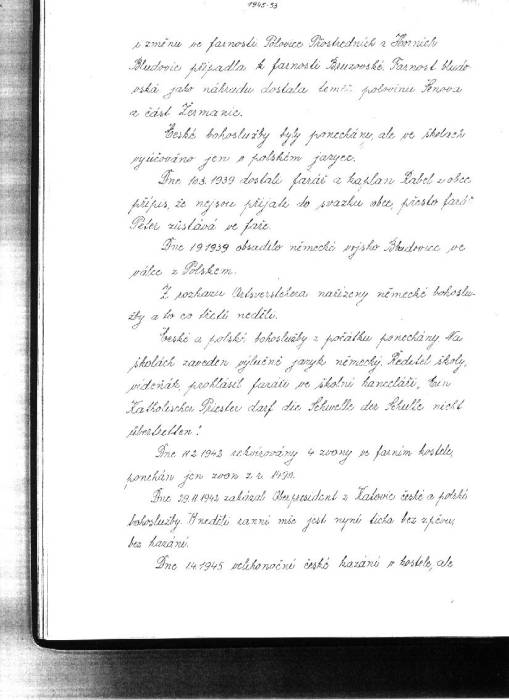 1945-53
i změnu ve farnosti Polovice Prostředních a Horních
Bludovic připadla k farnosti Bruzovské. Farnost bludo-
vská jako náhradu dostala téměř polovinu Šenova
a část Žermanic.
České bohoslužby byly ponechány, ale ve školách
vyučováno jen v polském jazyce.
Dne 10.3.1939 dostali farář a kaplan Rábel z obce
přípis, že nejsou přijati do svazku obce, přesto farář
Peter zůstává ve faře.
Dne 1.9.1939 obsadilo německé vojsko Bludovice ve
válce s Polskem.
Z rozkazu nařízeny německé bohoslu-
žby a to co třetí neděli.
České a polské bohoslužby z počátku ponechány. Na
školách zaveden výlučně jazyk německý. Ředitel školy,
vídeňák prohlásil faráři ve školní kanceláři, Ein
Katholischer Priester darf die Schwelle der Schule nicht
übertretten!
Dne 11.2.1942 rekvírovány 4 zvony ve farním kostele,
ponechán jen zvon z r.
Dne 29.11.1942 zakázal Oberpresident z Katovic české a polské
bohoslužby. V neděli ranní mše jest nyní tichá bez zpěvu,
bez kázání.
Dne 1.4.1945 velikonoční české kázání v kostele, ale